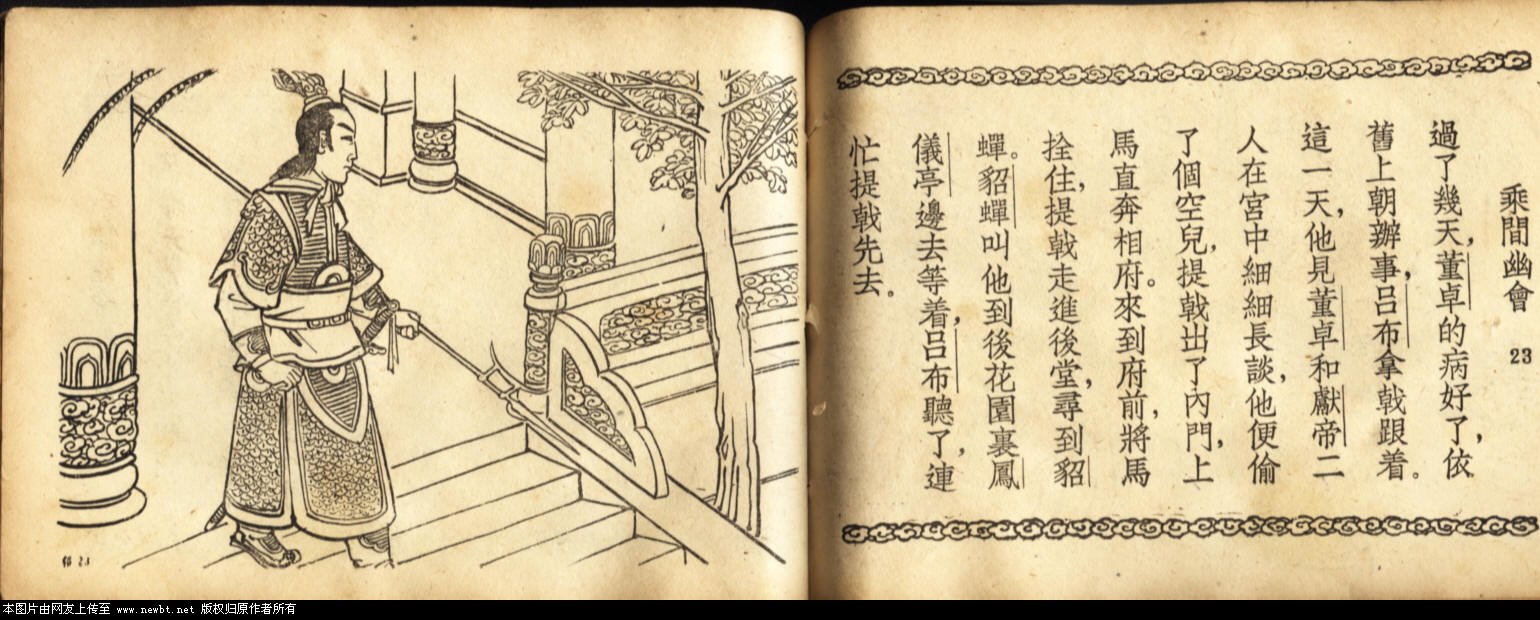 乘間幽會 23
過了幾天，董卓的病好了，依
舊上朝辦事，呂布拿戟跟着。
這一天，他見董卓和獻帝二
人在宮中細細長談，他便偷
了個空兒，提戟出了內門，上
馬直奔相府。來到府前，將馬
拴住，提戟走進後堂，尋到貂
蟬。貂蟬叫他到後花園裏鳳
儀亭邊去等着，呂布聽了，連
忙提戟先去。
23
本图片由网友上传至 www.newbt.net 版权归原作者所有